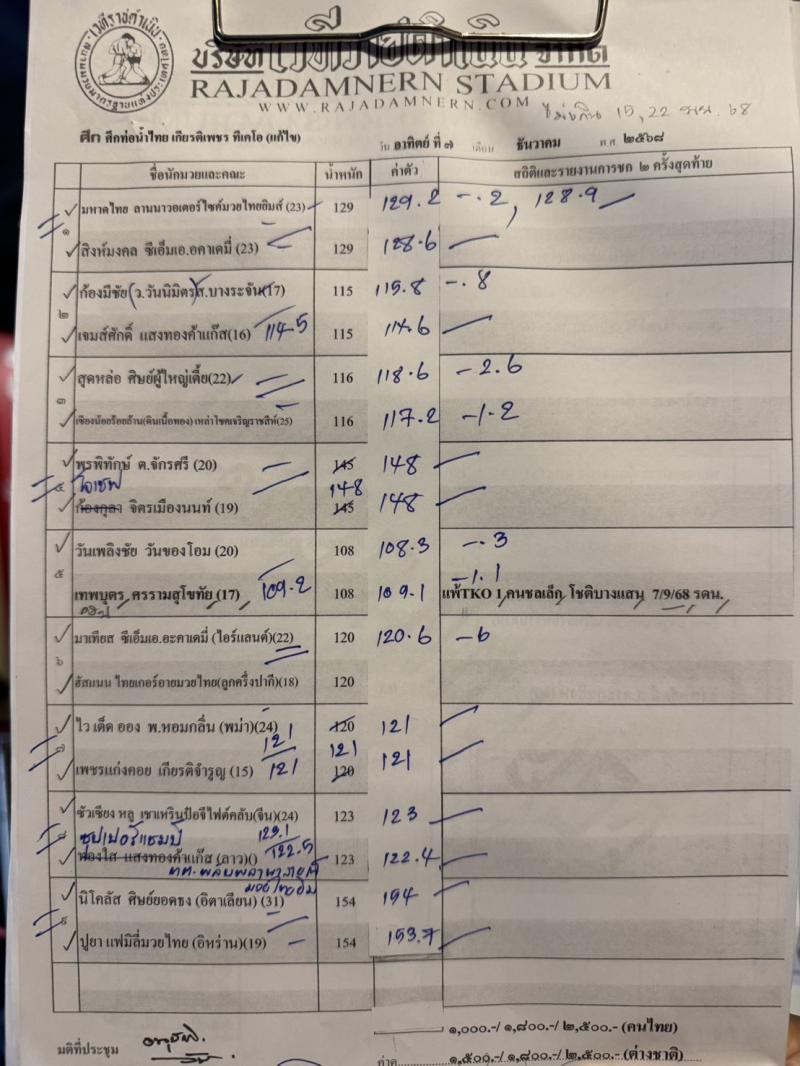 บริษัท เวทีราชดำเนิน จำกัด
RAJADAMNERN STADIUM
WWW.RAJADAMNERN.COM
15, 22 68
ศึก ศึกท่อน้ำไทย เกียรติเพชร ทีเคโอ (แก้ไข) วัน อาทิตย์ ที่ ๗ เดือน ธันวาคม พ.ศ ๒๕๖๘
ชื่อนักมวยและคณะ น้ำหนัก ค่าตัว สถิติและรายงานการชก ๒ ครั้งสุดท้าย
๑
มหาดไทย ลานนาวอเตอร์ไซค์มวยไทยยิมส์ (23) 129 129.2 -.2, 128.9
สิงห์มงคล ซีเอ็มเอ.อคาเดมี่ (23) 129 128.6
๒
ก้องมีชัย (ว.วันนิมิตร) ส.บางระจัน(17) 115 115.8 -.8
เจมส์ศักดิ์ แสงทองค้าแก๊ส(16) 114.5 115 114.6
๓
สุดหล่อ ศิษย์ผู้ใหญ่เตี้ย(22) 116 118.6 -2.6
เชียงน้อยร้อยล้าน(ดินเนื้อทอง) เหล่าโชคเจริญราชสีห์(25) 116 117.2 -1.2
๔
พรพิทักษ์ ต.จักรศรี (20) 145 148
ไอเซฟ 148
ก้องกุลา จิตรเมืองนนท์ (19) 145 148
๕
วันเพลิงชัย วันของโอม (20) 108 108.3 -.3
เทพบุตร ศรรามสุโขทัย (17) 109.2 108 109.1 -1.1 แพ้TKO 1 คนชลเล็ก โชติบางแสน 7/9/68 รดน.
๖
มาเทียส ซีเอ็มเอ.อะคาเดมี่ (ไอร์แลนด์)(22) 120 120.6 -6
ฮัสแนน ไทยเกอร์อายมวยไทย(ลูกครึ่งปากี)(18) 120
๗
ไว เต็ด ออง พ.หอมกลิ่น (พม่า)(24) 121 120 121
121
เพชรแก่งคอย เกียรติจำรูญ (15) 121 120 121
๘
ซัวเซียง หลู เขาเหรินป๋อจีไฟต์คลับ(จีน)(24) 123 123
ซุปเปอร์แชมป์ 123.1
ฟองใส แสงทองค้าแก๊ส (ลาว)() 122.5 123 122.4
๙
นิโคลัส ศิษย์ยอดธง (อิตาเลียน) (31) 154 154
ปูยา แฟมิลี่มวยไทย (อิหร่าน)(19) 154 153.7
๑,๐๐๐.-/ ๑,๘๐๐.-/ ๒,๕๐๐.- (คนไทย)
มติที่ประชุม
๑,๕๐๐.-/ ๑,๘๐๐.-/ ๒,๕๐๐.- (ต่างชาติ)